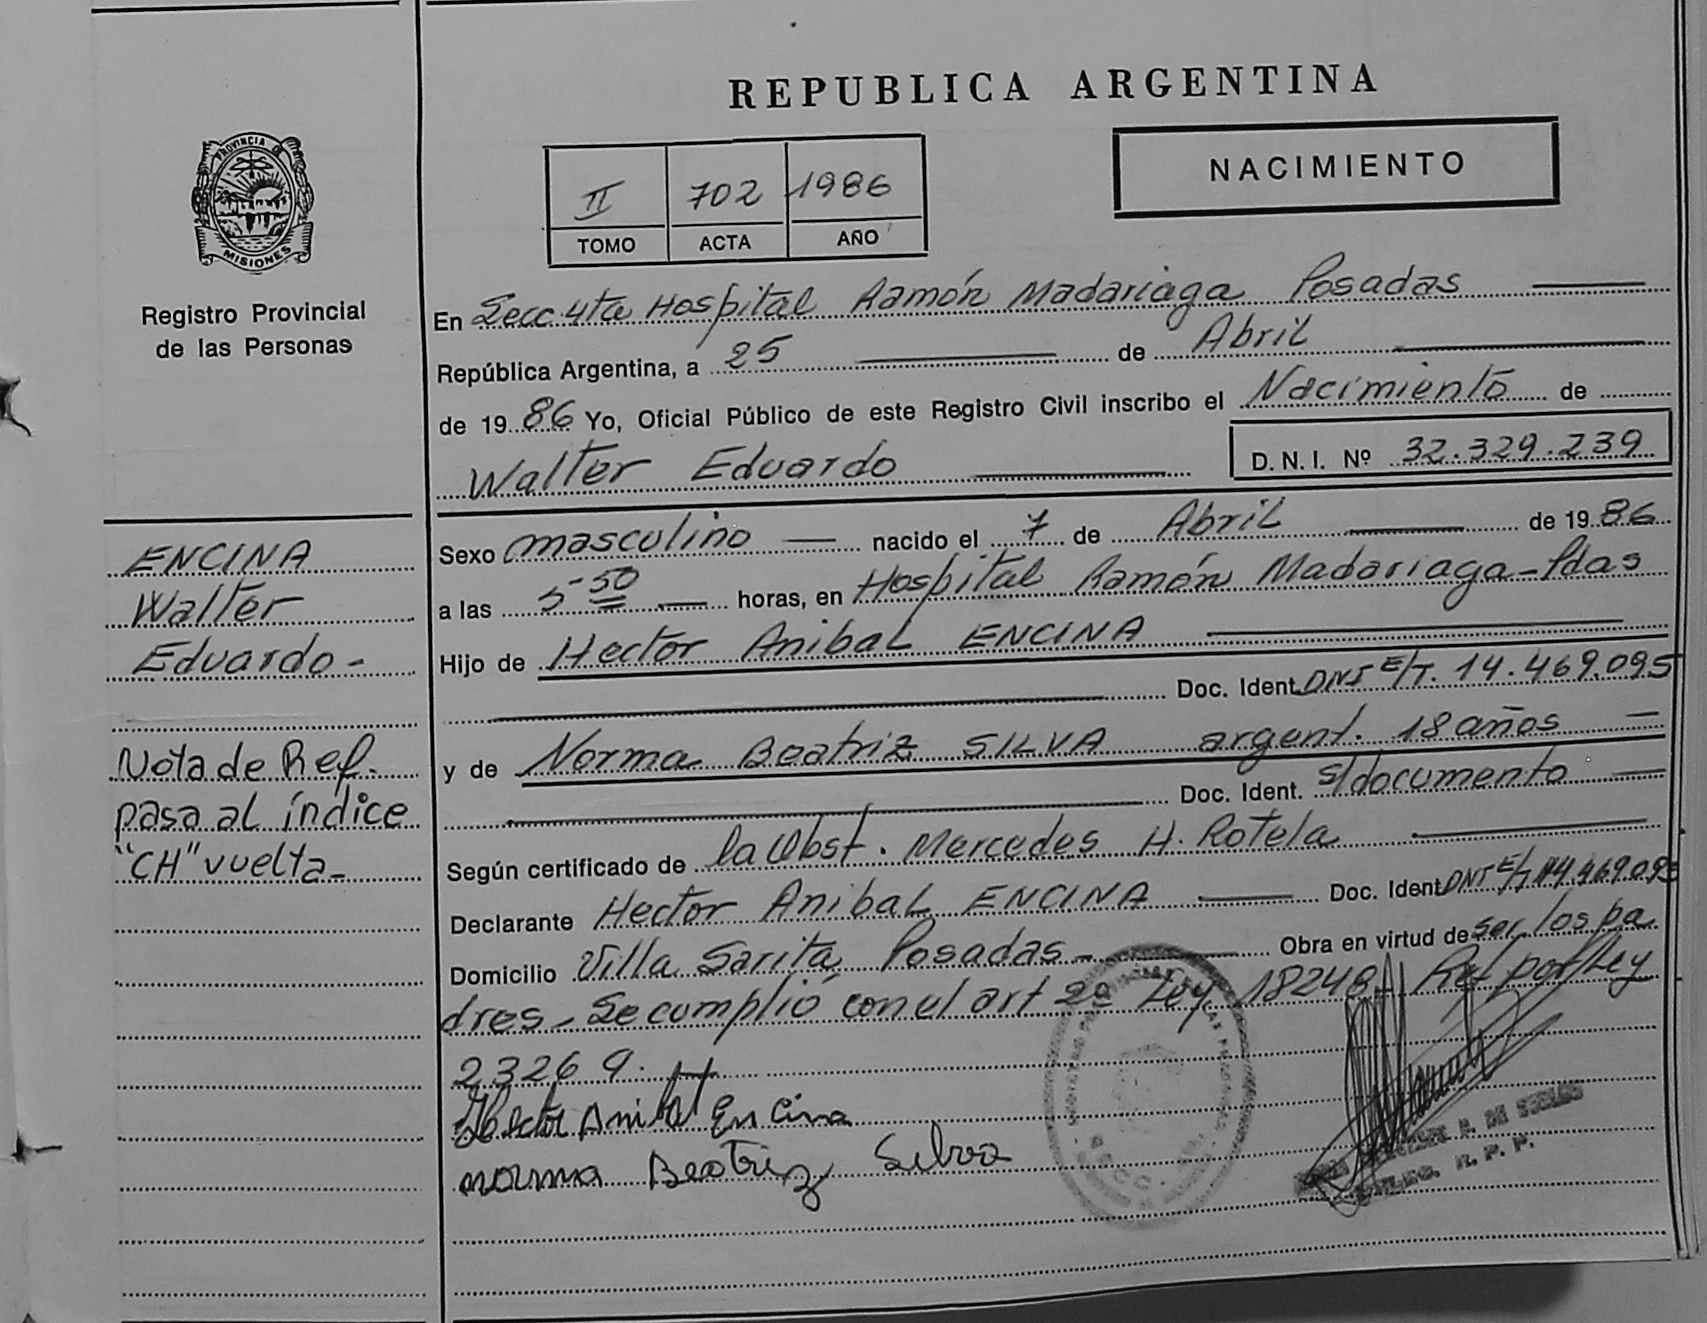 REPUBLICA ARGENTINA
PROVINCIA DE
MISIONES
Registro Provincial
de las Personas
II 702 1986
TOMO ACTA AÑO
NACIMIENTO
En Secc. 4ta Hospital Ramón Madariaga Posadas
República Argentina, a 25 de Abril
de 19 86 Yo, Oficial Público de este Registro Civil inscribo el Nacimiento de
Walter Eduardo D. N. I. Nº 32.329.239
Sexo masculino nacido el 7 de Abril de 19 86
a las 5-50 horas, en Hospital Ramón Madariaga - Pdas
Hijo de Hector Anibal ENCINA
Doc. Ident. DNI E/T. 14.469.095
y de Norma Beatriz SILVA argent. 18 años
Doc. Ident. s/documento
Según certificado de la Obst. Mercedes H. Rotela
Declarante Hector Anibal ENCINA Doc. Ident. DNI E/T 14.469.095
Domicilio Villa Sarita, Posadas - Obra en virtud de ser los pa
dres - Se cumplió con el art 2º Ley 18248 - Ref por Ley
23269.
Hector Anibal Encina
norma Beatriz Silva
ENCINA
Walter
Eduardo -
Nota de Ref.
pasa al índice
"CH" vuelta -